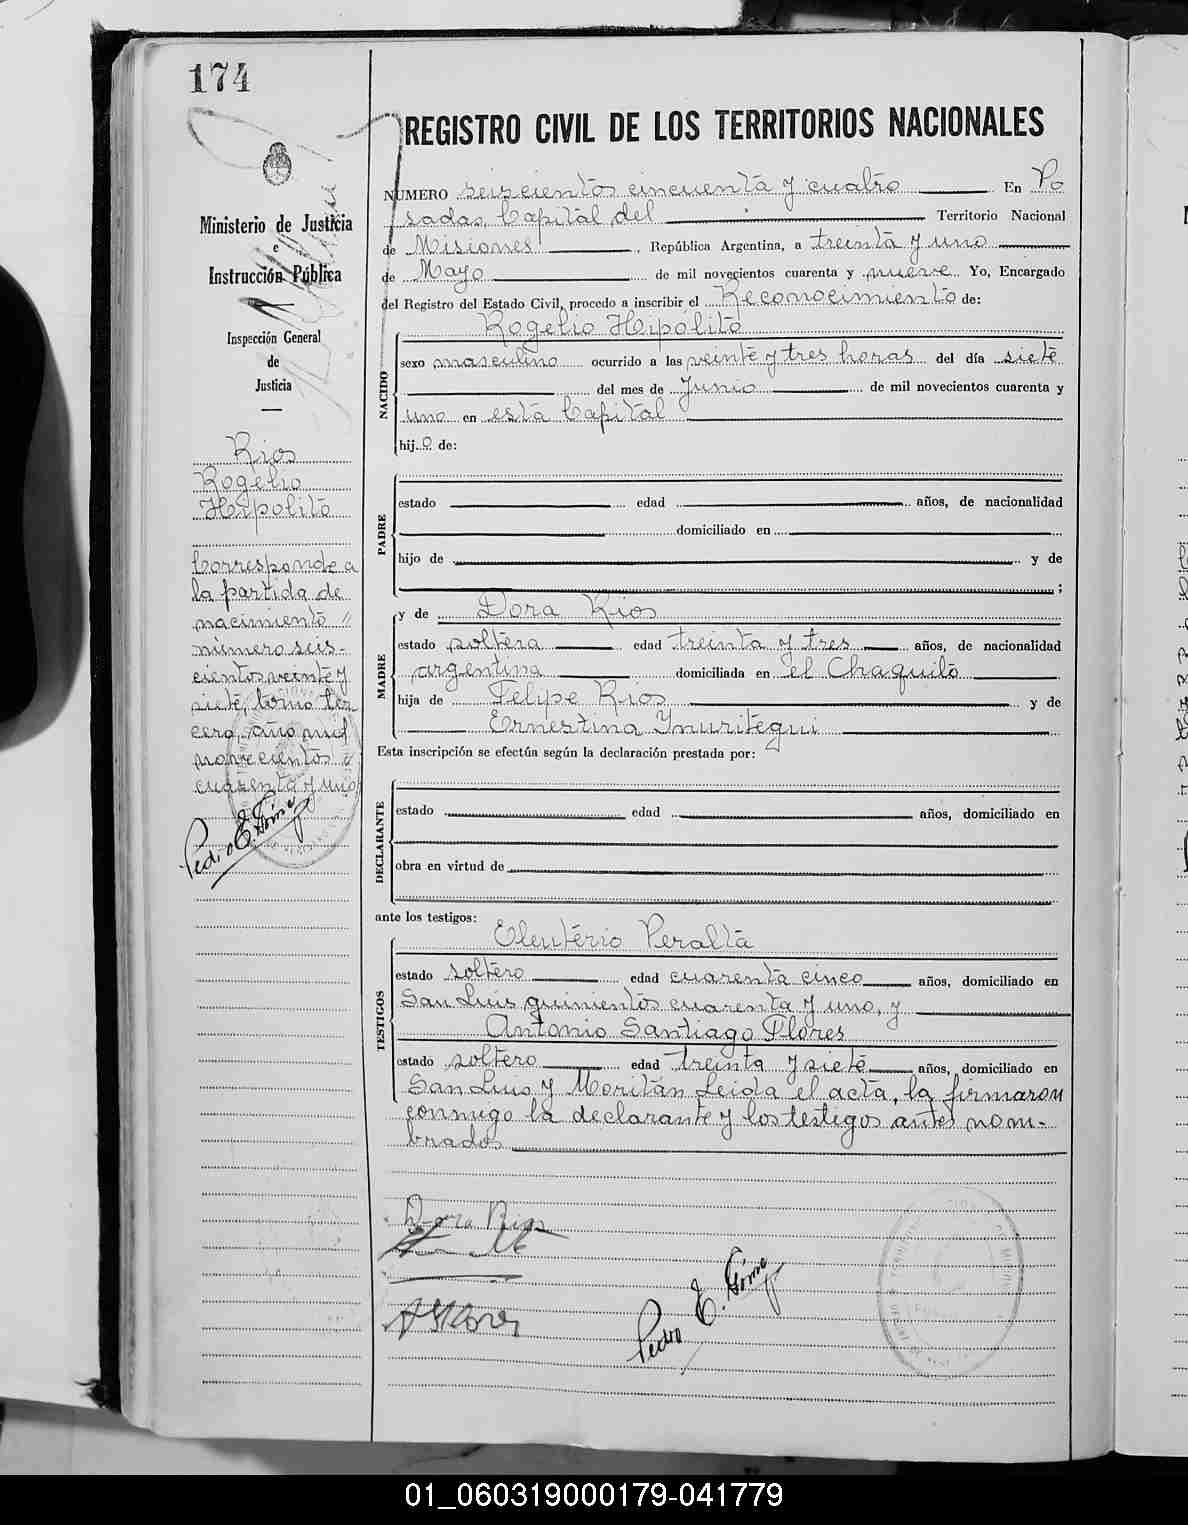 174
REGISTRO CIVIL DE LOS TERRITORIOS NACIONALES
Ministerio de Justicia
e
Instrucción Pública
Inspección General
de
Justicia
Rios
Rogelio
Hipolito
Corresponde a
la partida de
nacimiento //
número seis-
cientos veinte y
siete, tomo ter
cero, año mil
novecientos
cuarenta y uno
Pedro E. Gime
NUMERO seiscientos cincuenta y cuatro En Po
sadas, Capital del Territorio Nacional
de Misiones, República Argentina, a treinta y uno
de Mayo de mil novecientos cuarenta y nueve Yo, Encargado
del Registro del Estado Civil, procedo a inscribir el Reconocimiento de:
NACIDO
Rogelio Hipólito
sexo masculino ocurrido a las veinte y tres horas del día siete
del mes de Junio de mil novecientos cuarenta y
uno en esta Capital
hijo de:
PADRE
estado edad años, de nacionalidad
domiciliado en
hijo de y de
;
MADRE
y de Dora Rios
estado soltera edad treinta y tres años, de nacionalidad
argentina domiciliada en el Chaquito
hija de Felipe Rios y de
Ernestina Ynuritegui
Esta inscripción se efectúa según la declaración prestada por:
DECLARANTE
estado edad años, domiciliado en
obra en virtud de
ante los testigos:
TESTIGOS
Eleutério Peralta
estado soltero edad cuarenta cinco años, domiciliado en
San Luis quinientos cuarenta y uno, y
Antonio Santiago Flores
estado soltero edad treinta y siete años, domiciliado en
San Luis y Moritán Leida el acta, la firmaron
conmigo la declarante y los testigos antes nom-
brados
Dora Rios
ASFlores
Pedro E. Gime
01_060319000179-041779